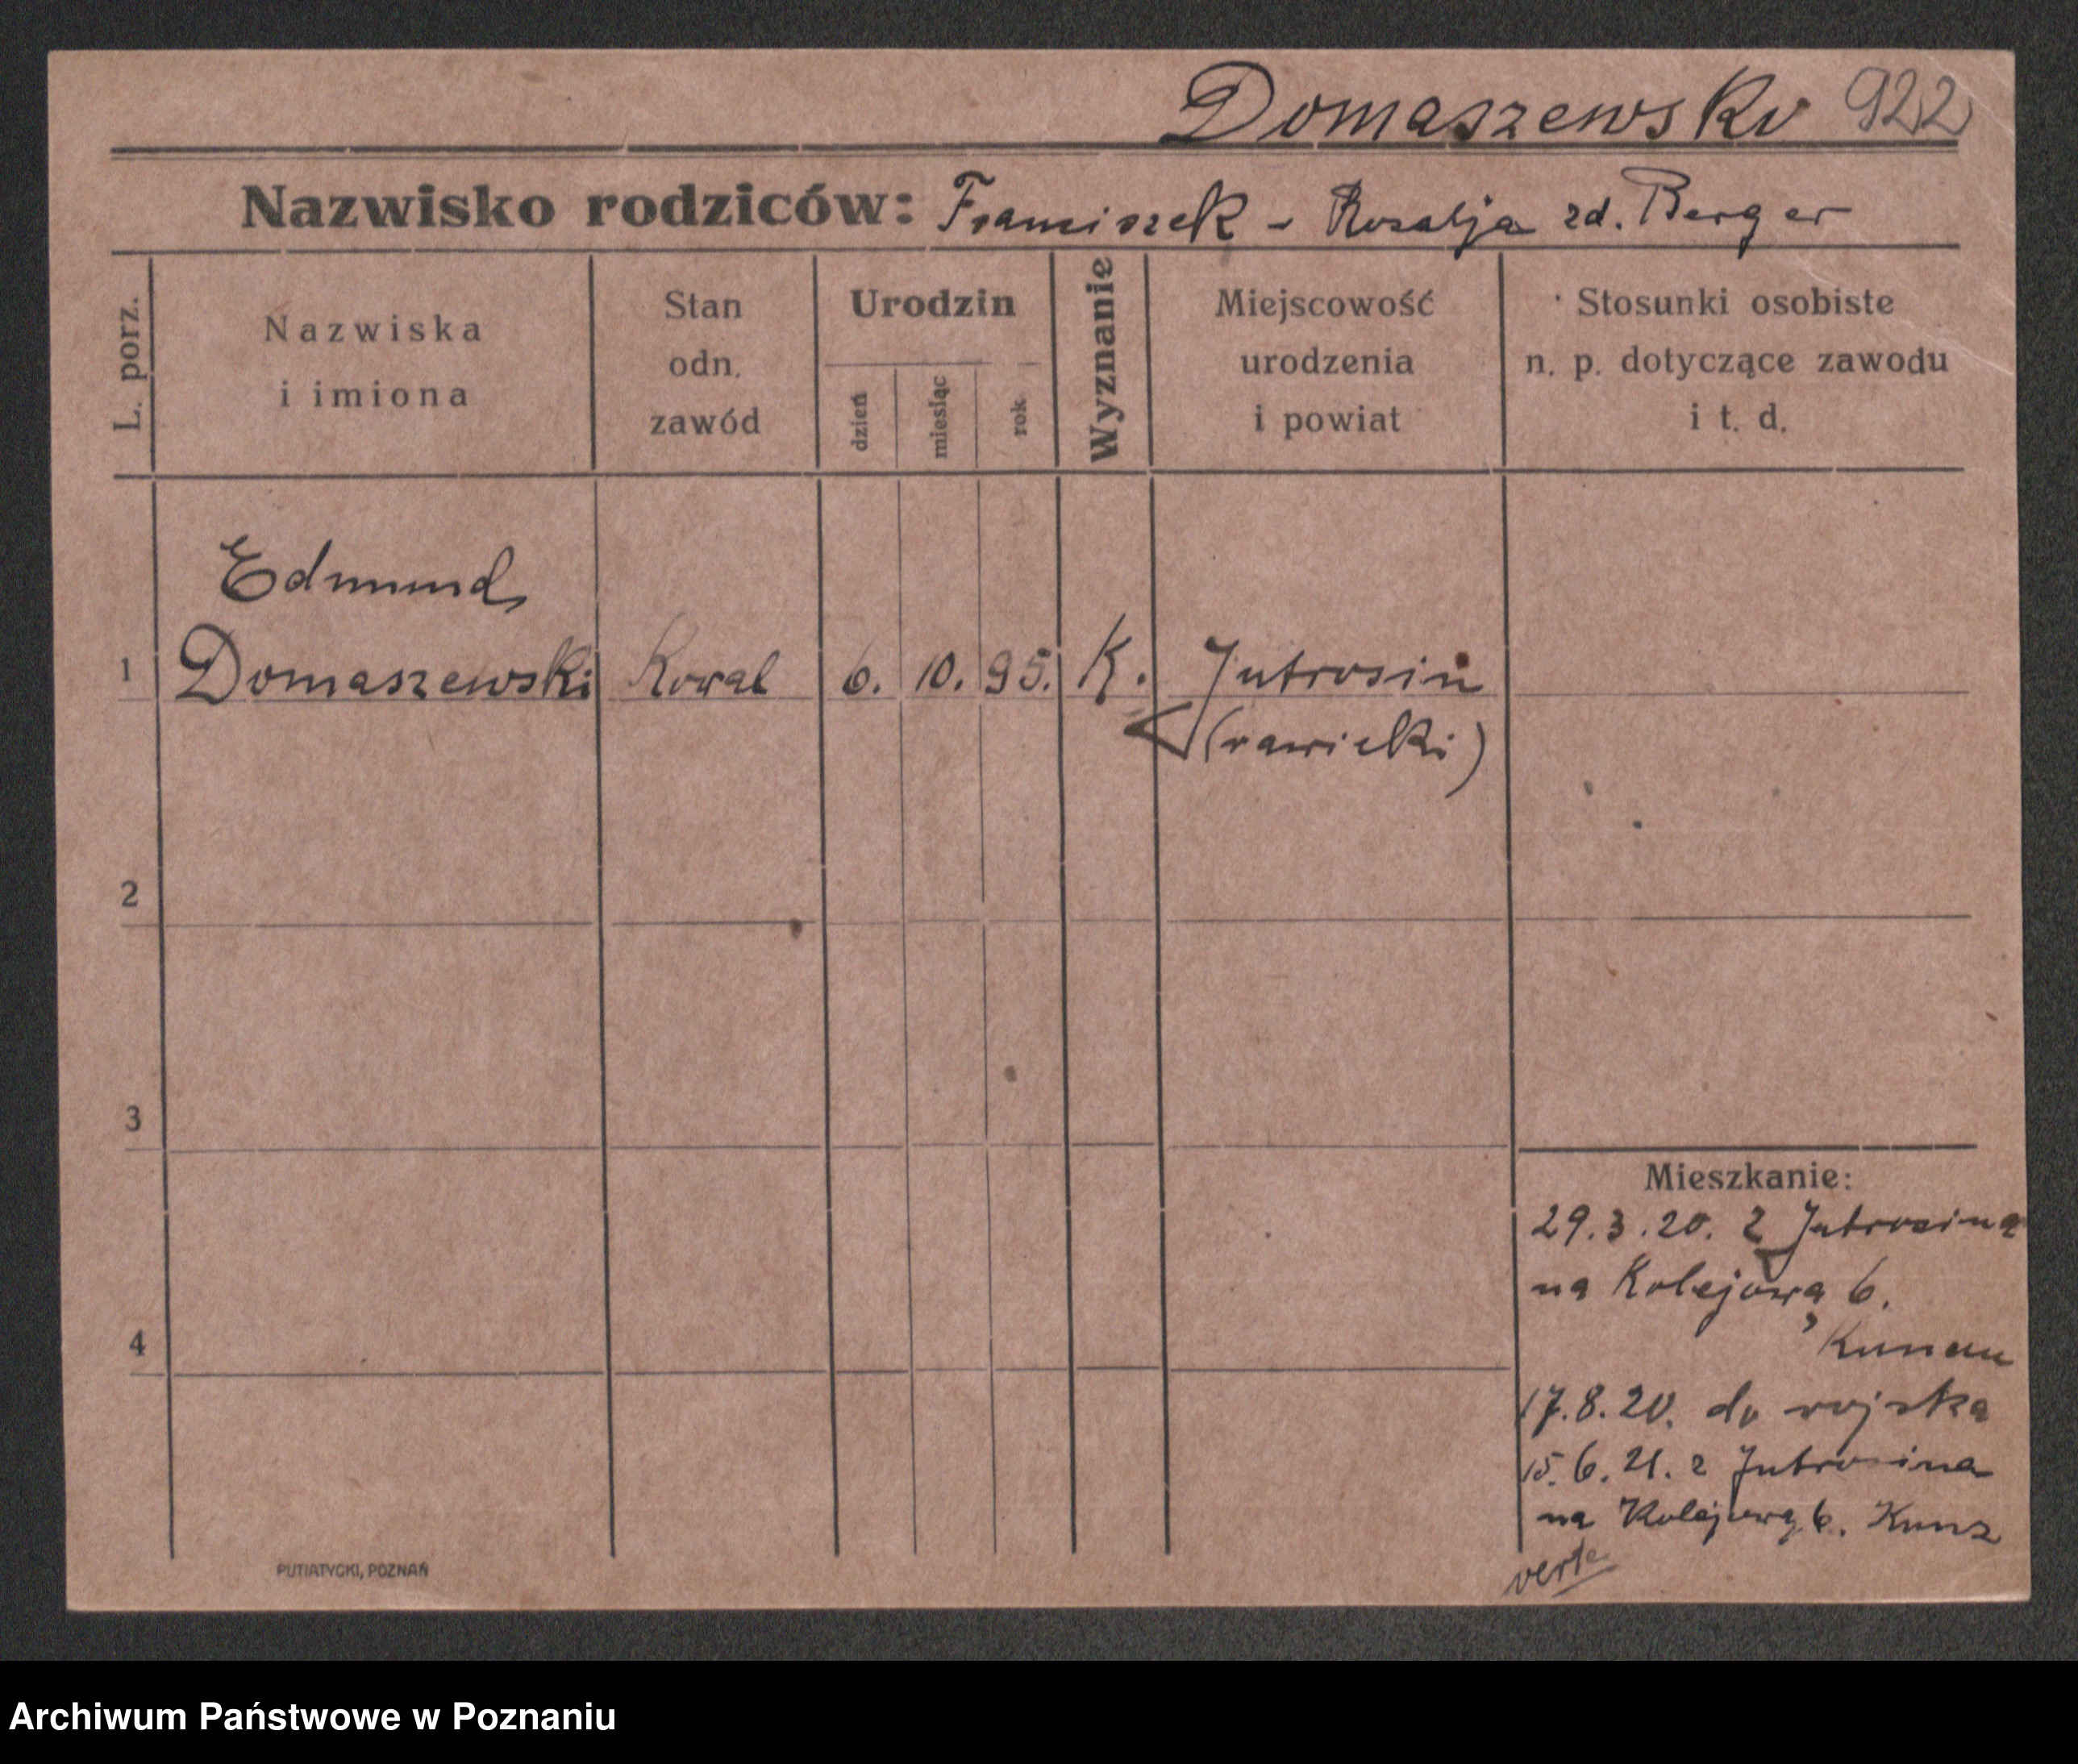 Domaszewski 922
Nazwisko rodziców: Franciszek - Rozalja zd. Berger
L. porz.
Nazwiska
i imiona
Stan
odn.
zawód
Urodzin
dzień
miesiąc
rok
Wyznanie
Miejscowość
urodzenia
i powiat
Stosunki osobiste
n. p. dotyczące zawodu
i t. d.
Edmund
1 Domaszewski Kowal 6. 10. 95. K. Jutrosin
(rawicki)
2
3
4
Mieszkanie:
29.3.20. z Jutrosina
na Kolejową 6.
17.8.20. do wojska
15.6.21. z Jutrosina
na Kolejową 6. Kunz
verte
PUTIATYCKI, POZNAŃ
Archiwum Państwowe w Poznaniu